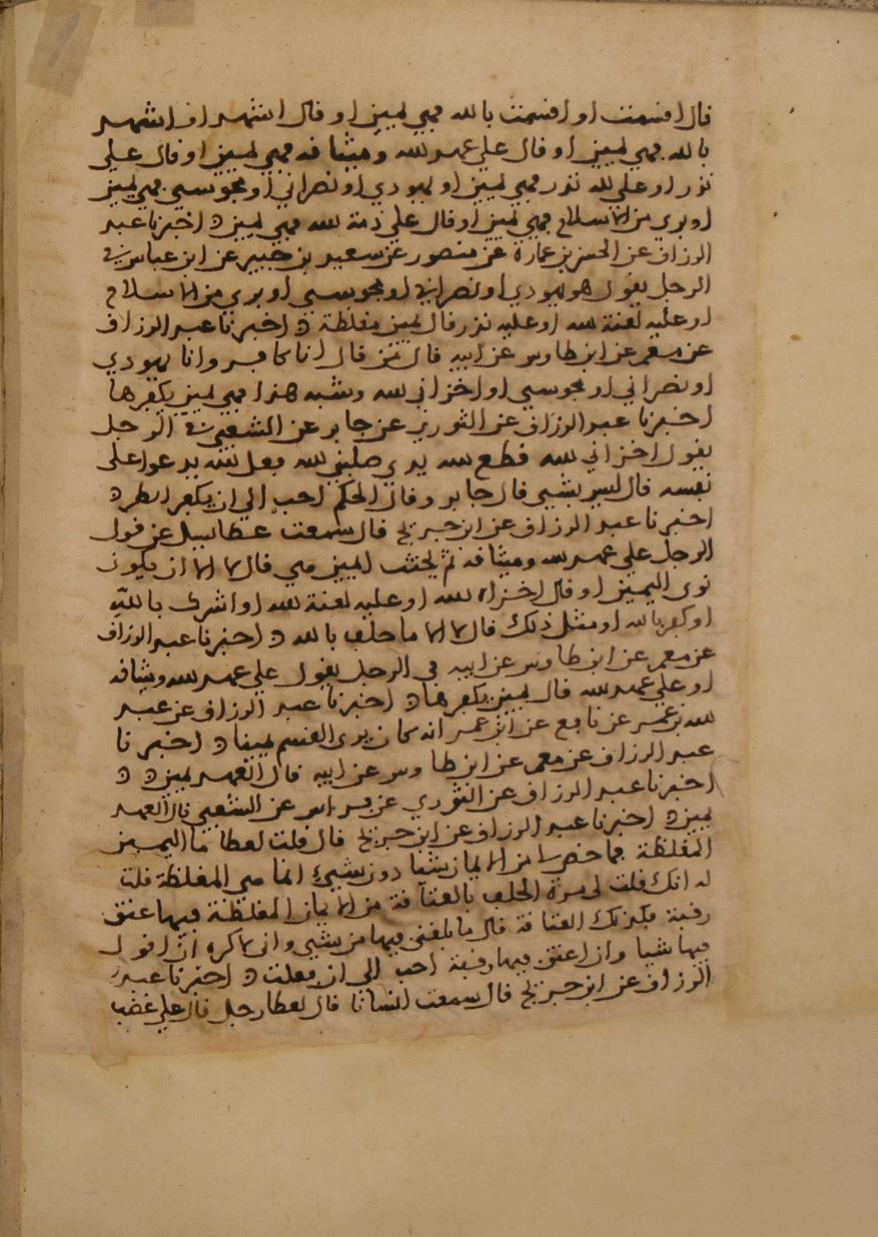 قال اقسمت او اقسمت بالله فهي يمين او قال اشهد او اشهد
بالله فهي يمين او قال علي عهد الله وميثاقه فهي يمين او قال علي
نذر او علي لله نذر فهي يمين او يهودي او نصراني او مجوسي فهي يمين
او بري من الاسلام فهي يمين او قال علي ذمة الله فهي يمين اخبرنا عبد
الرزاق عن الحسن بن عمارة عن منصور عن سعيد بن جبير عن ابن عباس في
الرجل يقول هو يهودي او نصراني او مجوسي او بري من الاسلام
او عليه لعنة الله او عليه نذر قال يمين مغلظة اخبرنا عبد الرزاق
عن معمر عن ابن طاوس عن ابيه قال من قال انا كافر وانا يهودي
او نصراني او مجوسي او اخزاني الله وشبه هذا فهي يمين يكفرها
اخبرنا عبد الرزاق عن الثوري عن جابر عن الشعبي في الرجل
يقول اخزاني الله قطع الله يدي صلبني الله فعل الله يدعوا على
نفسه قال ليس بشيي قال جابر وقال الحكم احب الي ان يكفر
اخبرنا عبد الرزاق عن ابن جريج قال سمعت عطا سيل عن قول
الرجل علي عهد الله وميثاقه ثم يحنث ايمين هي قال لا الا ان يكون
نوى اليمين او قال اخزاه الله او عليه لعنة الله او اشرك بالله
او كفر بالله او مثل ذلك قال لا الا ما حلف بالله اخبرنا عبد الرزاق
عن معمر عن ابن طاوس عن ابيه في الرجل يقول علي عهد الله وميثاقه
او علي عهد الله قال يمين يكفرها اخبرنا عبد الرزاق عن عبد
الله بن عمر عن نافع عن ابن عمر انه كان يرى القسم يمينا اخبرنا
عبد الرزاق عن معمر عن ابن طاوس عن ابيه قال العهد يمين
اخبرنا عبد الرزاق عن الثوري عن فراس عن الشعبي قال العهد
يمين اخبرنا عبد الرزاق عن ابن جريج قال قلت لعطا ما اليمين
المغلظة فما خص من الايمان شيا دون شييء انما هي المغلظة قلت
له انك قلت لي مرة الحلف بالعتاقة من الايمان المغلظة فيها عتق
رقبة فكذلك العتاقة قال ما بلغني فيها من شيي واني لاكره ان اقول
فيها شيا وان اعتق فيها رقبة احب الي ان فعلت اخبرنا عبد
الرزاق عن ابن جريج قال سمعت انسانا قال لعطا رجل قال علي غضب